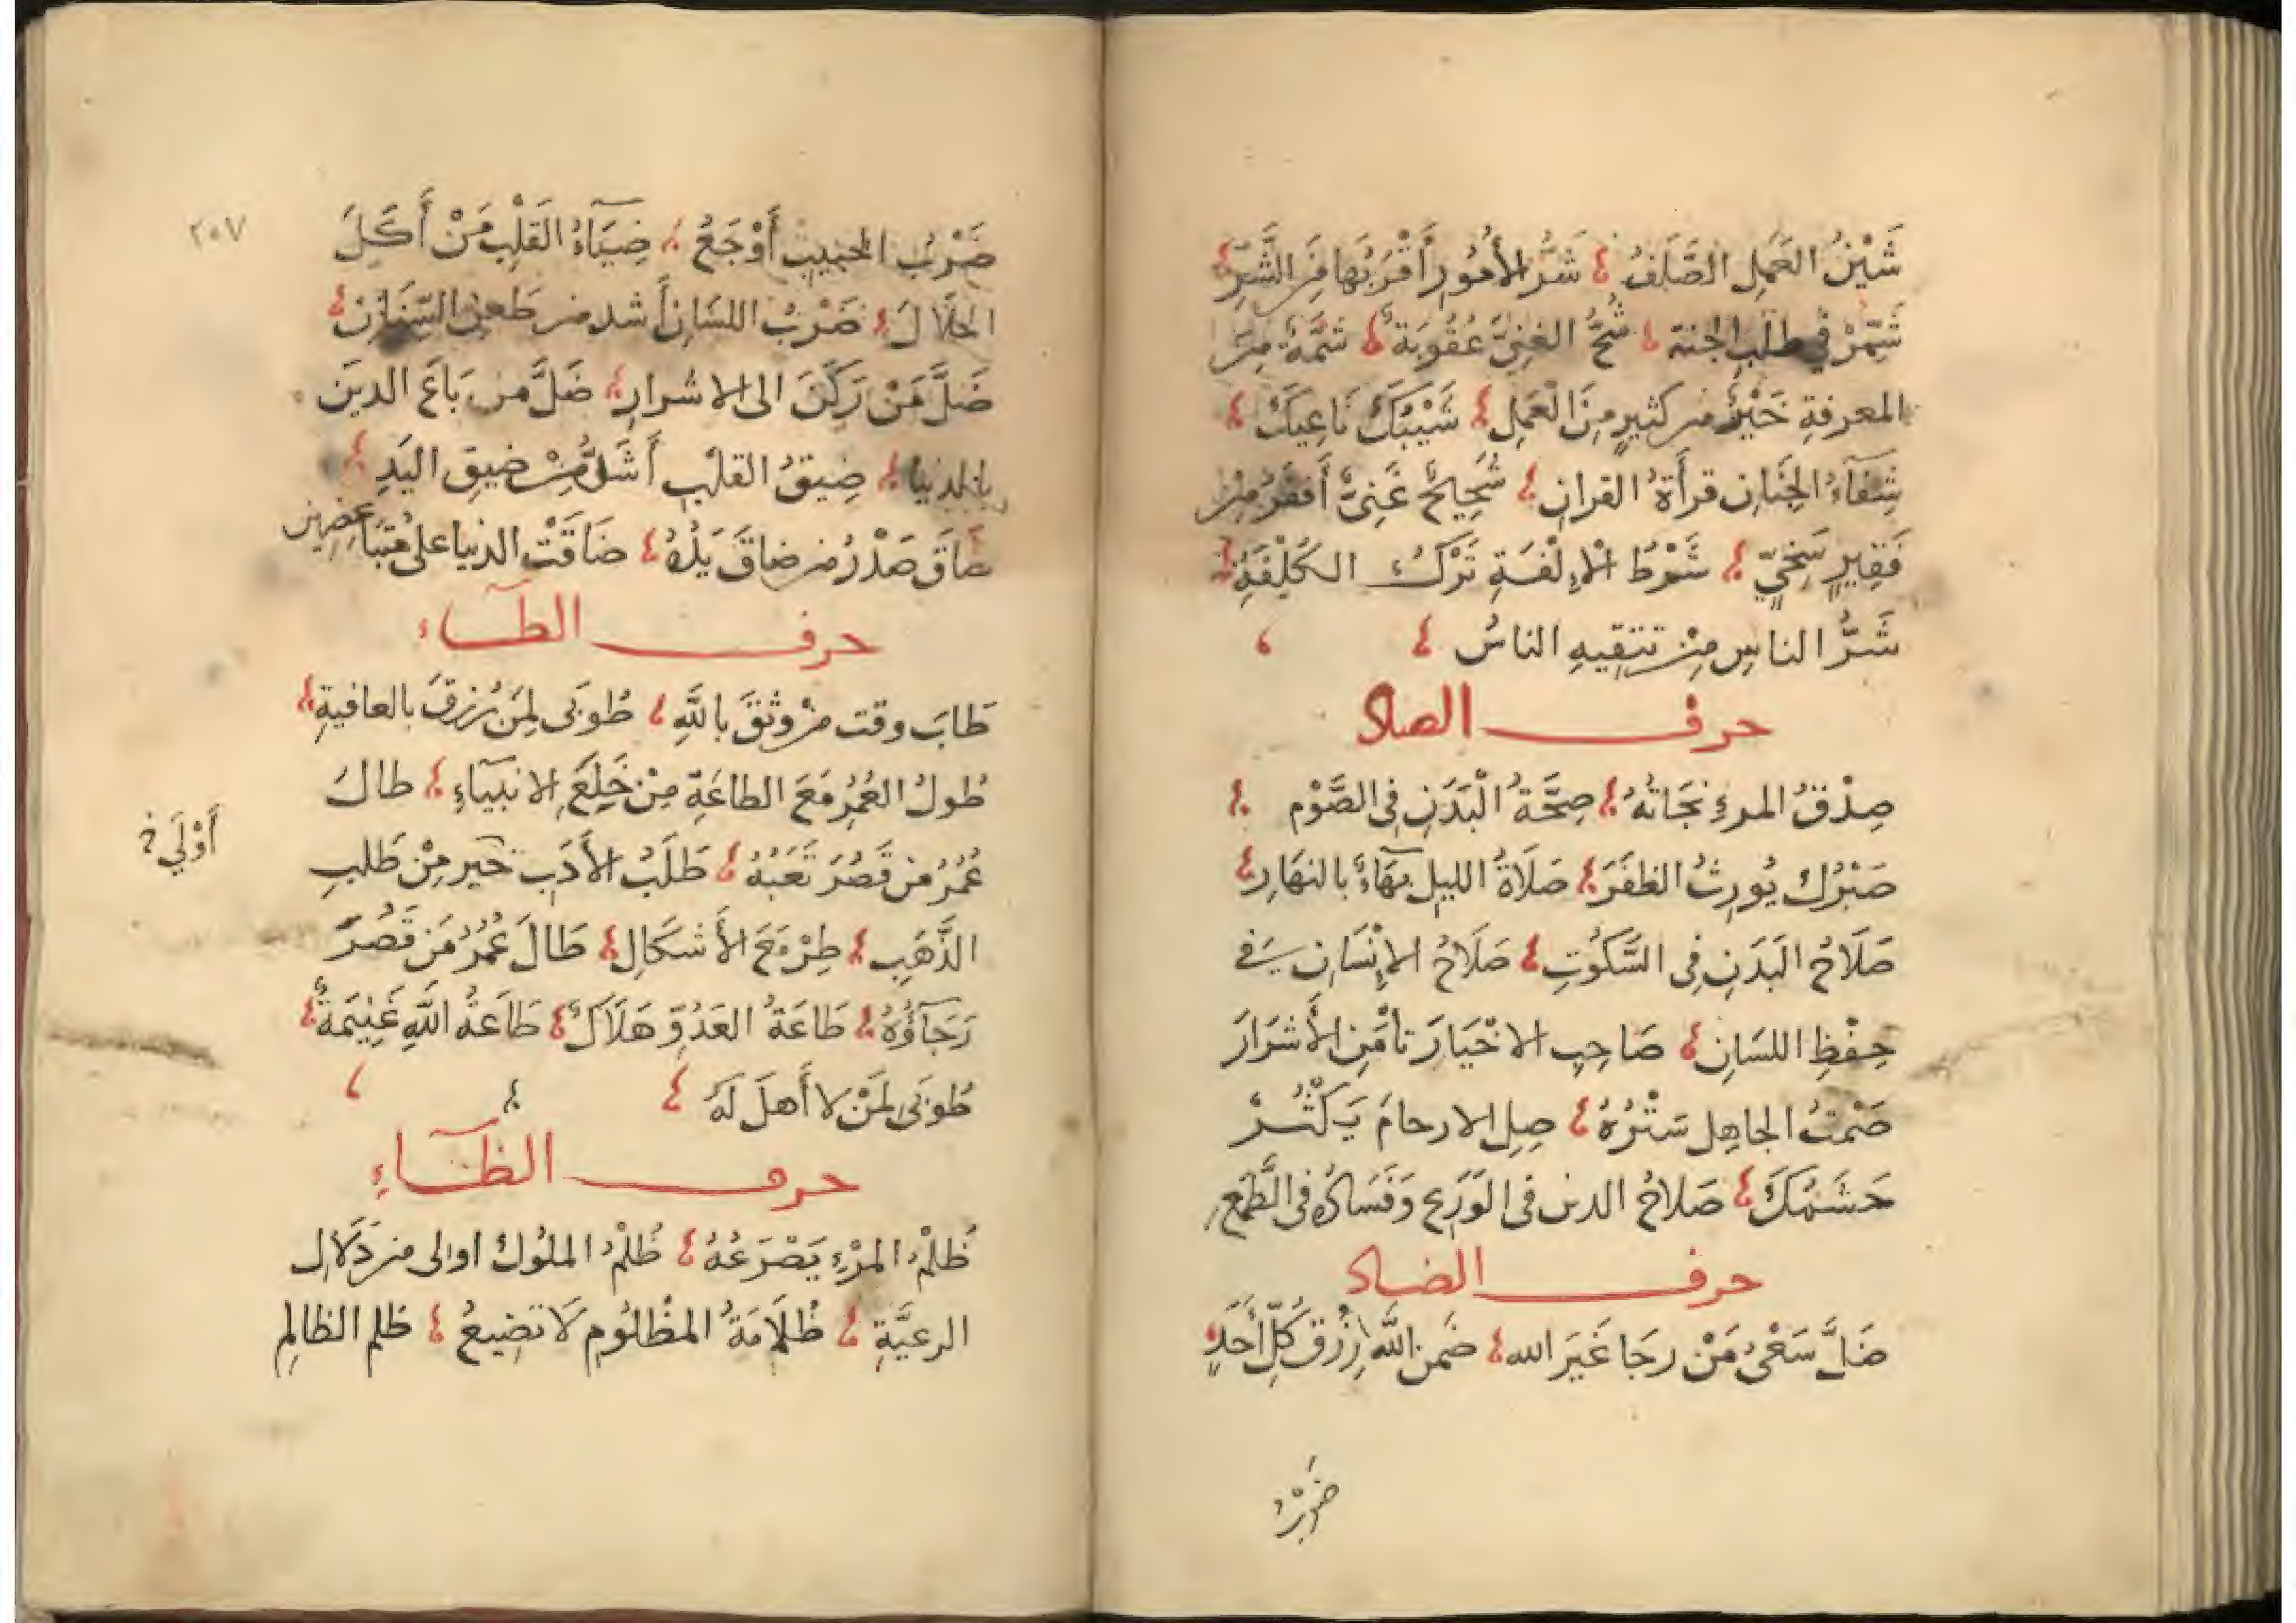 شَيْنُ العَمَلِ الصَّلَفُ شَرُّ الأُمُورِ أَقْرَبُهَا مِنَ الشَّرِّ
شَمِّرْ فِي طلَبِ الجنة شُحُّ الغنِيِّ عُقُوبَة شَمَّةٌ مِنَ
المعرفةِ خَيْرٌ من كثيرٍ مِنَ الْعَمَلِ شَيْبُكَ نَاعِيكَ
شِفَآءُ الجَنَانِ قرأَةُ القرانِ شَحِيحٌ غَنِيٌّ أَفقَرُ مِنْ
فَقِيرٍ سَخِيٍّ شَرْطُ الْإِلْفَةِ تَرْكُ الكُلْفَةِ
شَرُّ الناسِ مِنْ تتقِيهِ الناسُ
حرف الصاد
صِدْقُ المرءِ نجَاتُهُ صِحَّةُ الْبَدَنِ فى الصَّوْم
صَبْرُكَ يُورِثُ الظفَرَ صَلَاةُ الليلِ بَهَآءٌ بالنهَارِ
صَلَاحُ البَدَنِ فى السَّكُوتِ صَلَاحُ الإِنْسَانِ فے
حِفْظِ اللسَانِ صَاحِبِ الاخْيَارَ تأمَنِ الأَشرَارَ
صَمْتُ الجاهِل سَتْرُهُ صِلِ الارحامَ يَكْثُرْ
حَشَمُكَ صَلَاحُ الدين فى الوَرَعِ وَفَسَادُهُ فى الطَّمَعِ
حرف الضاد
ضَلَّ سَعْىُ مَنْ رجَا غَيَرَ الله ضَمن اللَّه رِزْقَ كُلِّ أَحَدٍ
ضَرْبُ
٢٠٧
ضَرْبُ الحَبِيبِ أَوْجَعُ ضِيَآءُ القَلْبِ مَنْ أَكَلَ
الحَلَالَ ضَرْبُ اللسَانِ أَشد من طَعنِ السِّنَانِ
ضَلَّ مَنْ رَكَنَ الى الاشرارِ ضَلَّ من بَاعَ الدينَ
بالدنيا ضِيقُ القلْبِ أَشَدُّ مِنْ ضِيقِ اليَدِ
ضاقَ صَدْرُ من ضاقَ يَدُهُ ضَاقَتْ الدنيا على مُتَبَاغِضِين
حرف الطآء
طَابَ وقت منْ وثقَ باللَّهِ طُوبَى لِمَنْ رُزقَ بالعافيةِ
طُولُ العُمُرِ مَعَ الطاعَةِ مِنْ خَلِعَ الانبيَآءِ طال
عُمُرُ من قَصُرَ تَعَبُهُ طَلَبُ الأَدَبِ خير مِنْ طَلبِ
أَوْلَى
الذَّهَبِ طِرْ مَعَ الأَشكَالِ طَالَ عُمُرُ مَن قَصُرَ
رَجَآؤُهُ طَاعَةُ العَدُوِّ هَلَاكٌ طَاعَةُ اللَّهِ غَنِيمَةٌ
طُوبَى لمَنْ لا أَهلَ لَهُ
حرف الظآء
ظُلْمُ المرْءِ يَصْرَعُهُ ظُلْمُ الملُوك اولى من دَلَالِ
الرعيَّةِ ظُلَامَةُ المظْلُومِ لَا تضِيعُ ظلم الظالِمِ